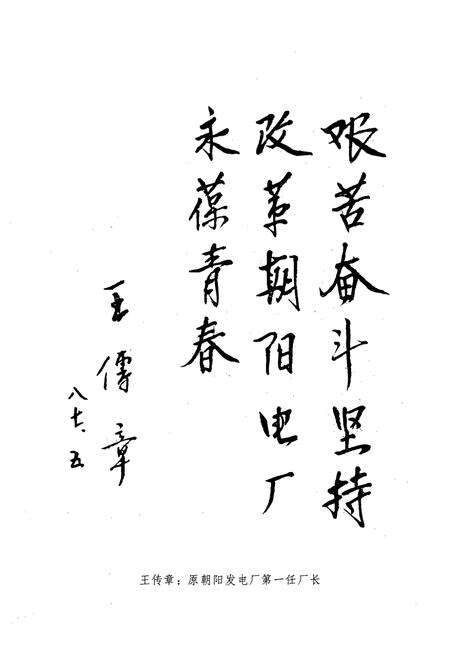 艰苦奋斗坚持
改革朝阳电厂
永葆青春
王傳章
八七、五
王传章：原朝阳发电厂第一任厂长